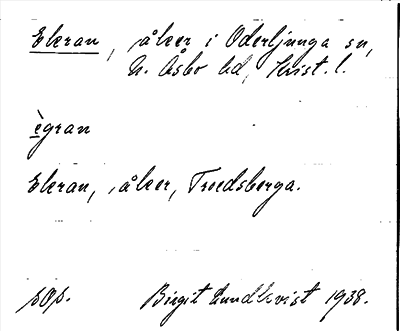 Ekran, åker i Oderljunga sn,
N. Åsbo hd, Krist. l.
ègran
Ekran, åker, Troedsberga.
sOp. Birgit Lundkvist 1938.